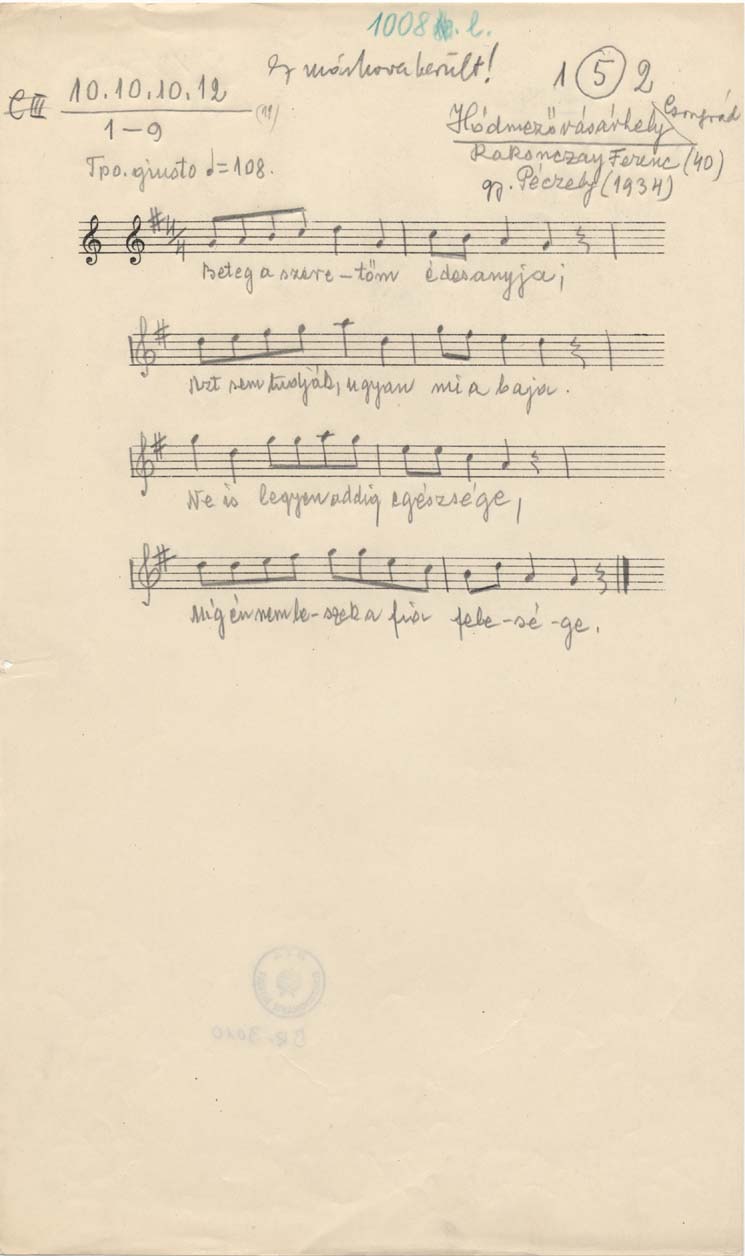 1008 . l.
Ez máshova került!
C III 10.10.10.12 (11)
1 – 9
1 5 2
Csongrád
Hódmezővásárhely
Rakonczay Ferenc (40)
gy. Péczely (1934)
Tpo. giusto d = 108.
4/4
Beteg a szere – tőm édesanyja;
Azt sem tudják, ugyan mi a baja.
Ne is legyen addig egészsége,
Míg én nem le – szek a fia fele – sé – ge.
BR-3010